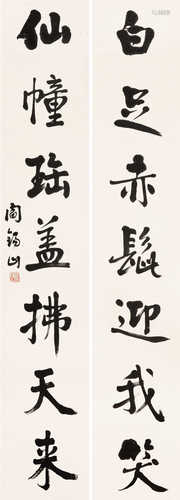 白足赤髭迎我笑
仙幢瑶盖拂天来
阎锡山